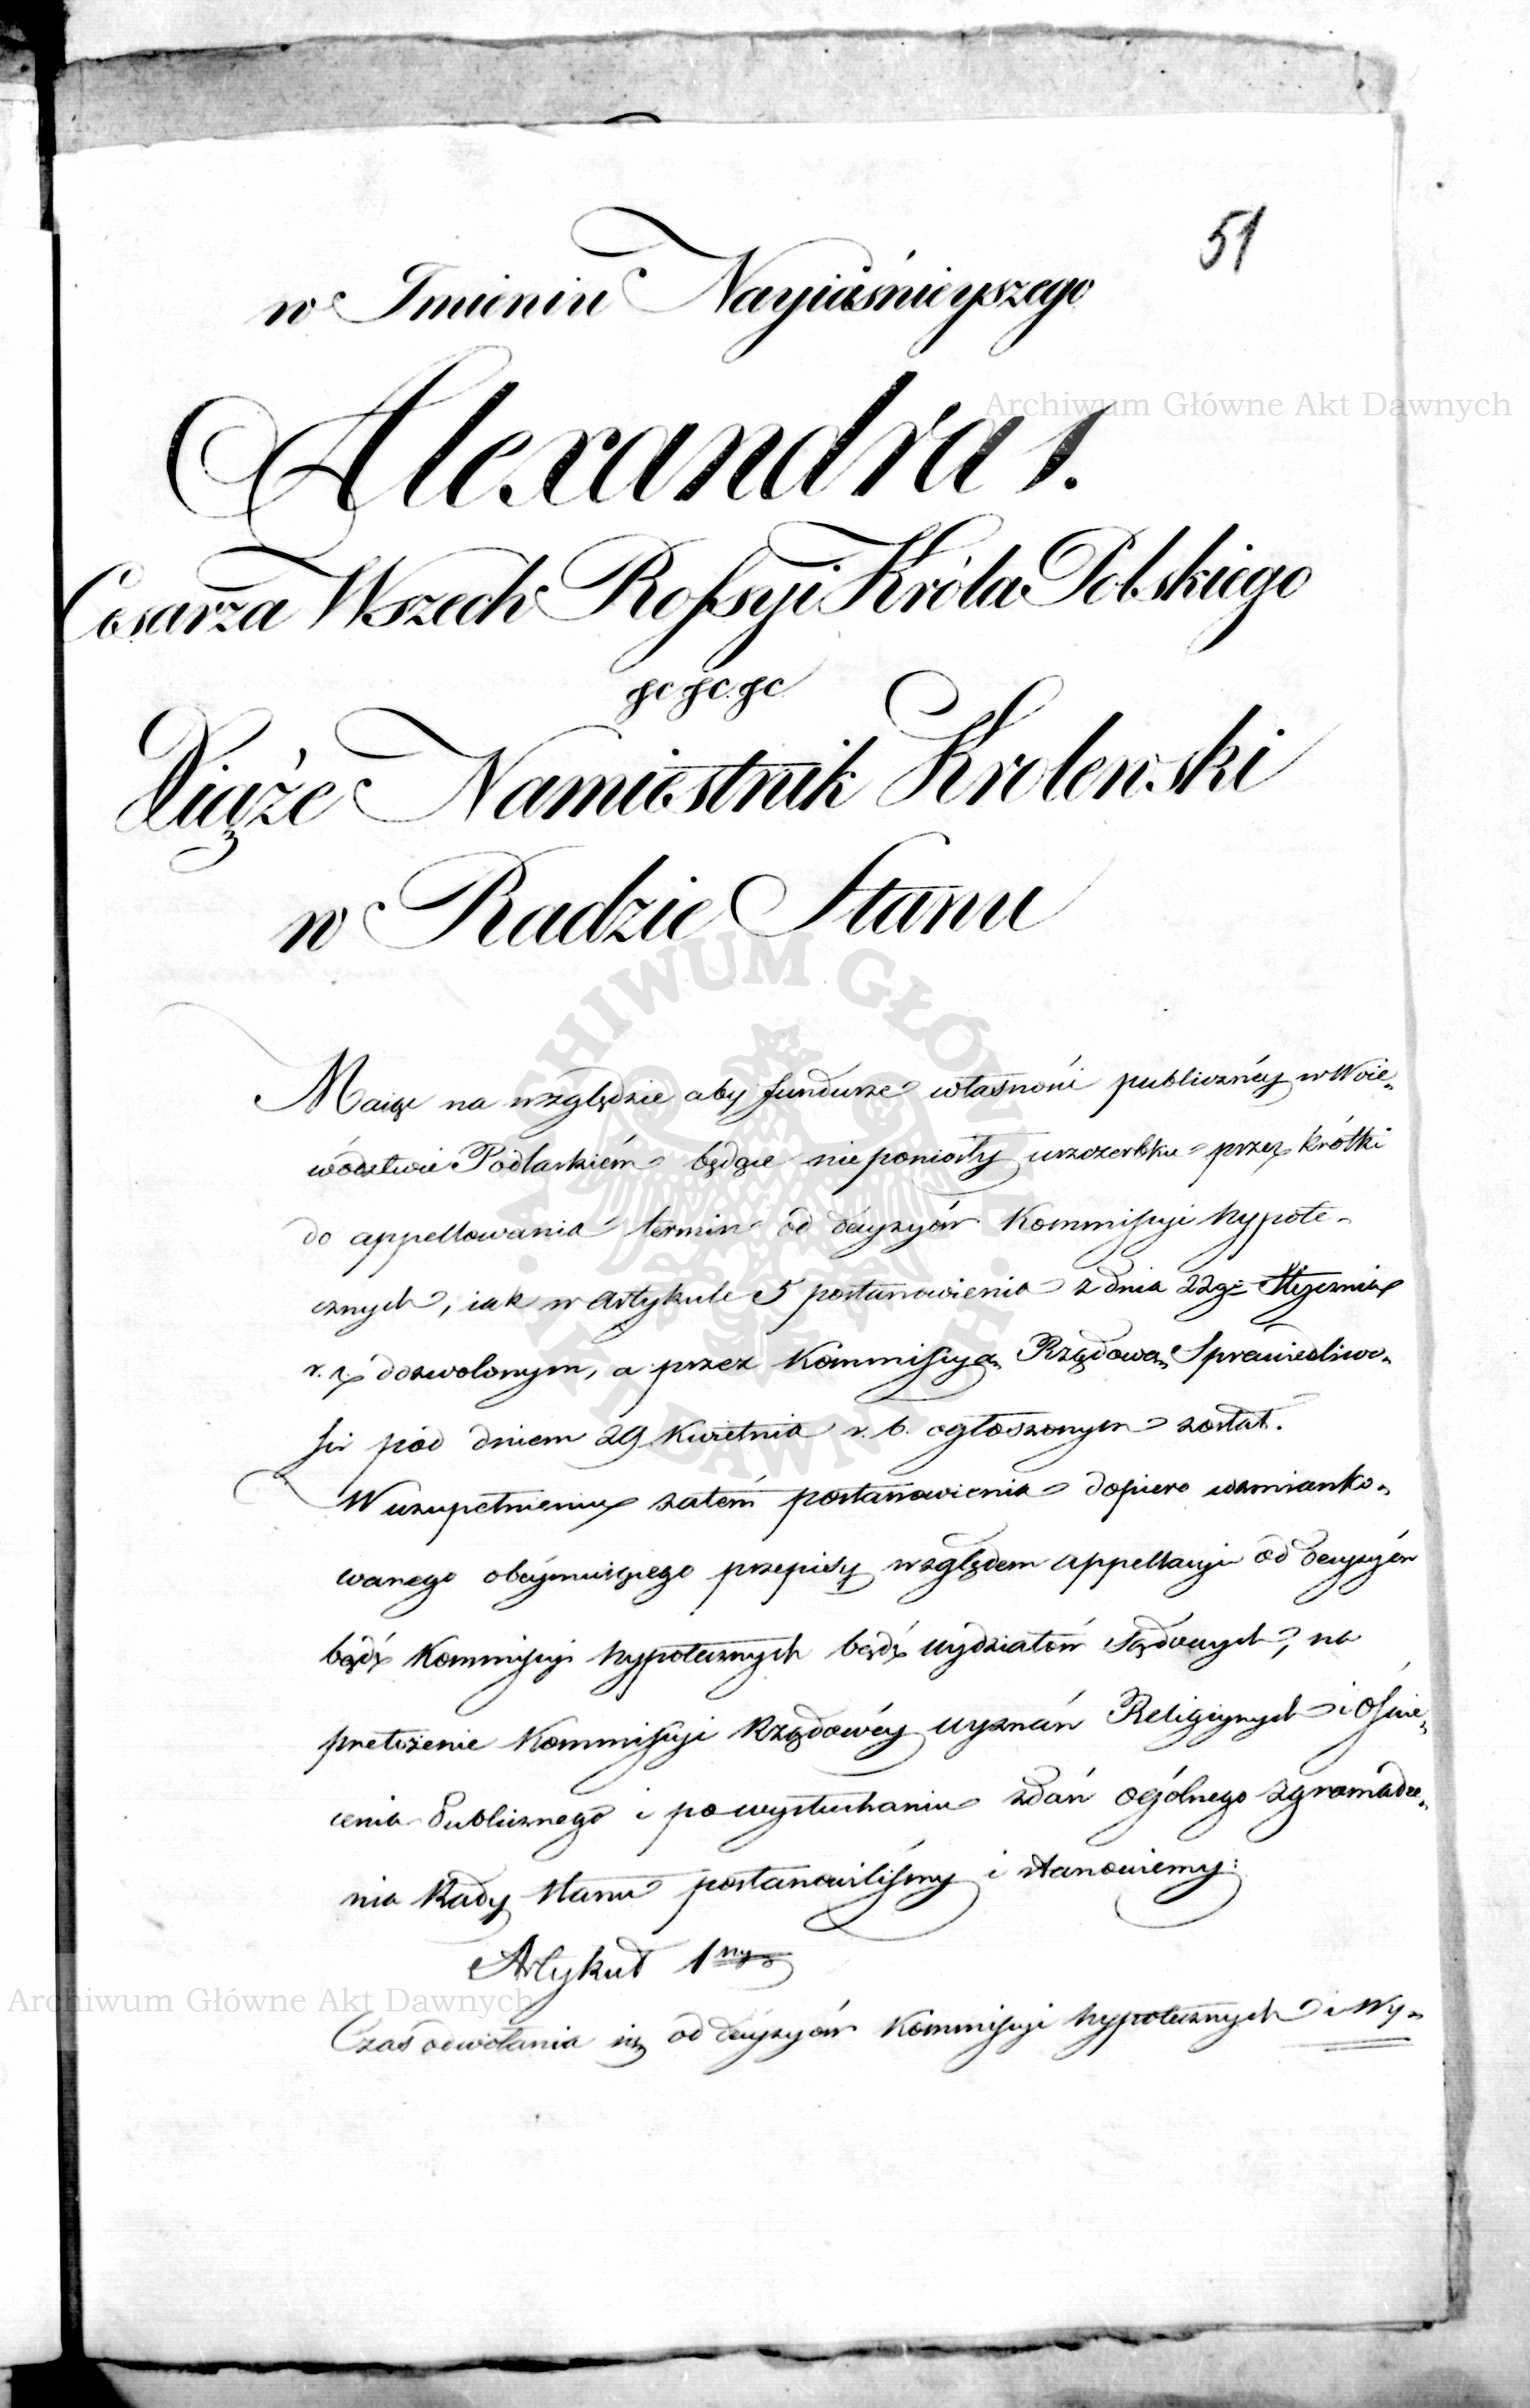 51
w Imieniu Nayiaśnieyszego
Alexandra 1.
Cesarza Wszech Rossyi Króla Polskiego
&c &c. &c
Xiąże Namiestnik Krolewski
w Radzie Stanu
Maiąc na względzie aby fundusze własności publicznéy w Woie„
wództwie Podlaskiém będące nieponiosły uszczerbku przez krótki
do appellowania termin od decyzyów Kommissyi hypote„
cznych, iak w Artykule 5 postanowienia z dnia 22go Stycznia
r. z. dozwolonym, a przez Kommissyą Rządową Sprawiedliwo„
ści pod dniem 29 Kwietnia r. b. ogłoszonym został.
W uzupełnieniu zatem postanowienia dopiero wzmianko„
wanego obeymuiącego przepisy względem appellacyi od decyzyów
bądź Kommissyi hypotecznych bądź wydziałów Sądowych, na
przełożenie Kommissyi Rządowéy wyznań Religiynych i Oświe„
cenia Publicznego i po wysłuchaniu zdań ogólnego zgromadze„
nia Rady Stanu postanowiliśmy i stanowiemy:
Artykuł 1ny
Czas odwołania się od decyzyów Kommissyi hypotecznych i Wy„
Archiwum Główne Akt Dawnych
Archiwum Główne Akt Dawnych
ARCHIWUM GŁÓWNE AKT DAWNYCH